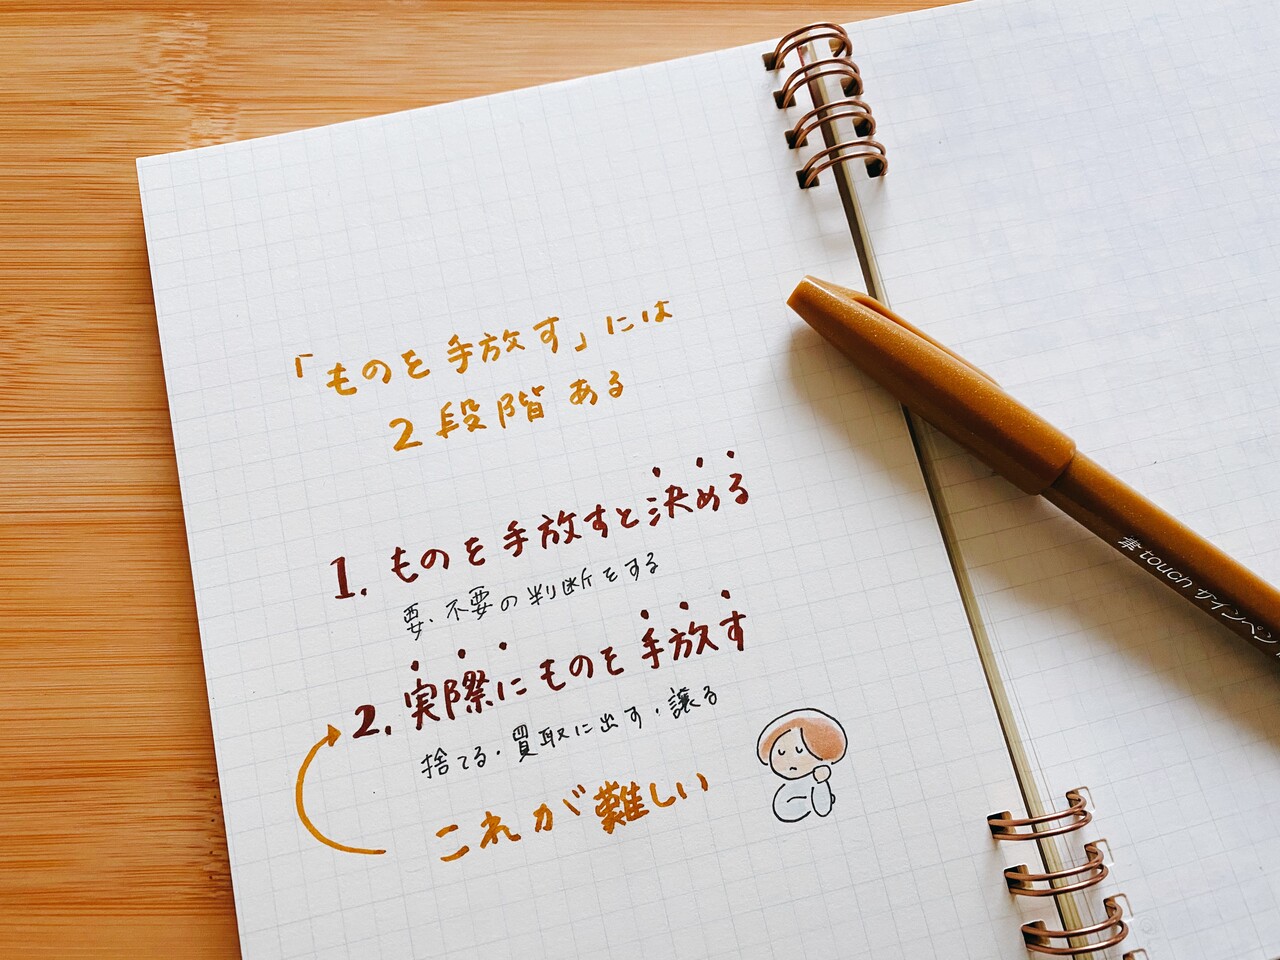 「ものを手放す」には
2段階ある
1. ものを手放すと決める
要・不要の判断をする
2. 実際にものを手放す
捨てる・買取に出す・譲る
これが難しい
筆touchサインペン